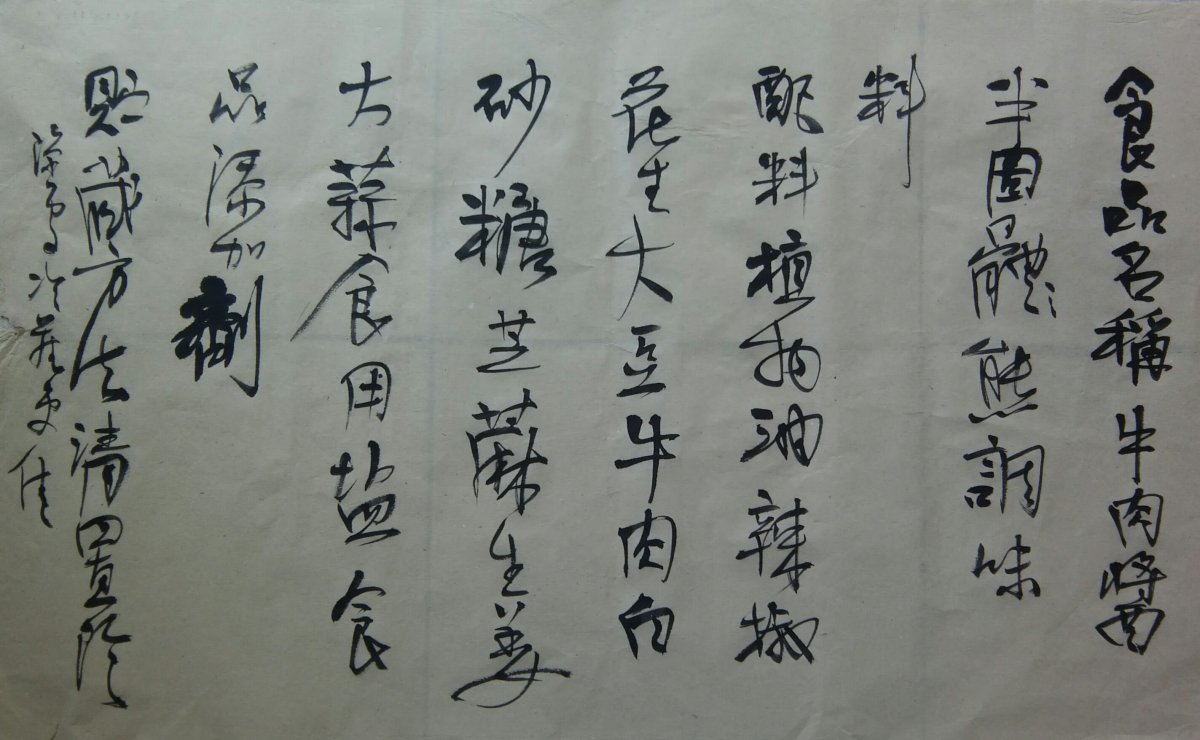 食品名稱牛肉醬
半固體態調味
料
配料植物油辣椒
花生大豆牛肉白
砂糖芝蔴生姜
大蒜食用盐食
品添加劑
貯藏方法請置陰
冷藏更佳